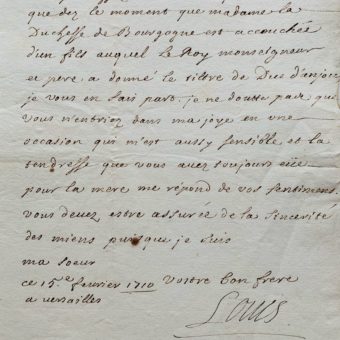 que dez le moment que madame la
Duchesse de Bourgogne est accouchée
d'un fils auquel le Roy monseigneur
et pere a donné le tiltre de Duc d'anjou
je vous en fais part. je ne doutte pas que
vous n'entriez dans ma joye en une
occasion qui m'est aussy sensible et la
tendresse que vous avez toujours eüe
pour la mere me répond de vos sentimens
vous devez estre assurée de la sincerité
des miens puisque je suis
ma soeur
ce 15.e fevrier 1710 Vostre bon frere
a versailles
Louis